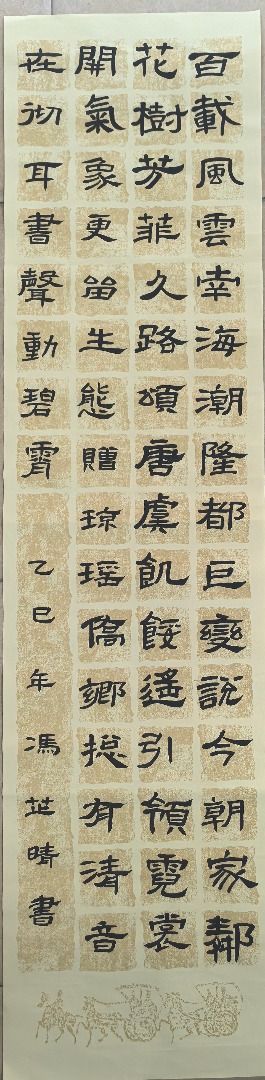 百載風雲幸海潮隆都巨變説今朝家鄰
花樹芳菲久路頌唐虞飢餒遙引領霓裳
開氣象更留生態贈琼瑶僑鄉揔有清音
在彻耳書聲動碧霄
乙巳年馮芷晴書